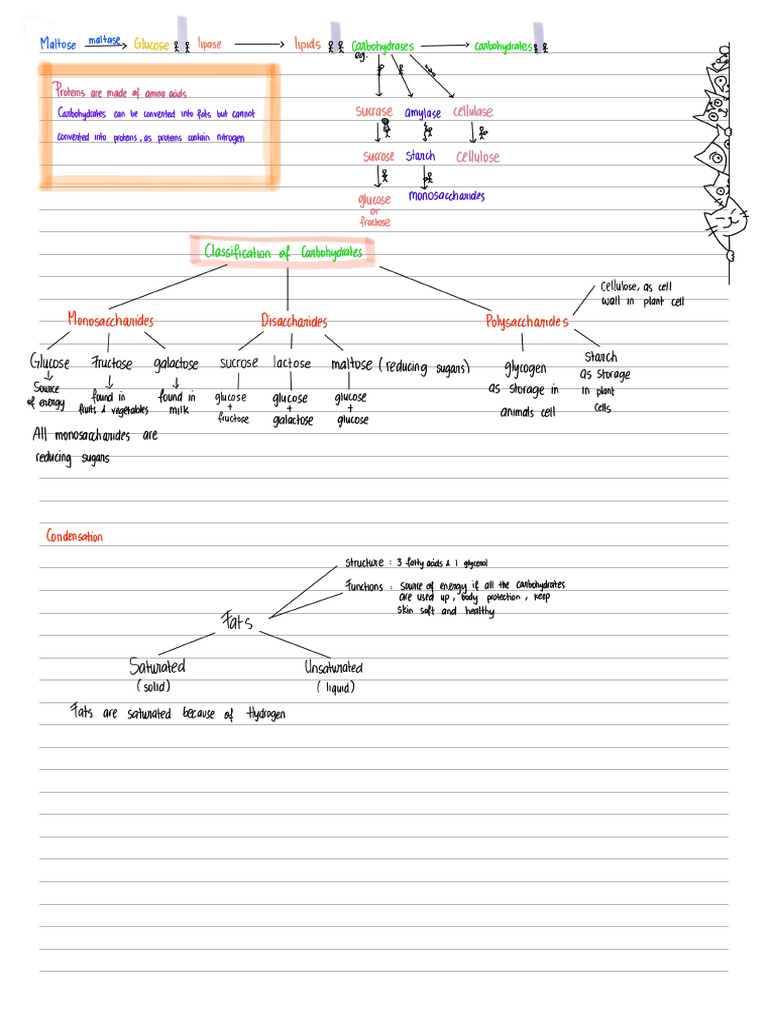 Maltose maltase Glucose lipase lipids Carbohydrases carbohydrates
eg.
Proteins are made of amino acids
Carbohydrates can be converted into fats but cannot
converted into proteins, as proteins contain nitrogen
sucrase amylase cellulase
sucrose starch cellulose
glucose monosaccharides
or
fructose
Classification of Carbohydrates
Cellulose, as cell
wall in plant cell
Monosaccharides Disaccharides Polysaccharides
Glucose Fructose galactose sucrose lactose maltose (reducing sugars) glycogen Starch
as storage in as storage
animals cell in plant
cells
Source found in found in glucose glucose glucose
of energy fruits & vegetables milk + + +
fructose galactose glucose
All monosaccharides are
reducing sugars
Condensation
Structure : 3 fatty acids & 1 glycerol
Functions : source of energy if all the carbohydrates
are used up, body protection, keep
skin soft and healthy
Fats
Saturated Unsaturated
(solid) (liquid)
Fats are saturated because of Hydrogen